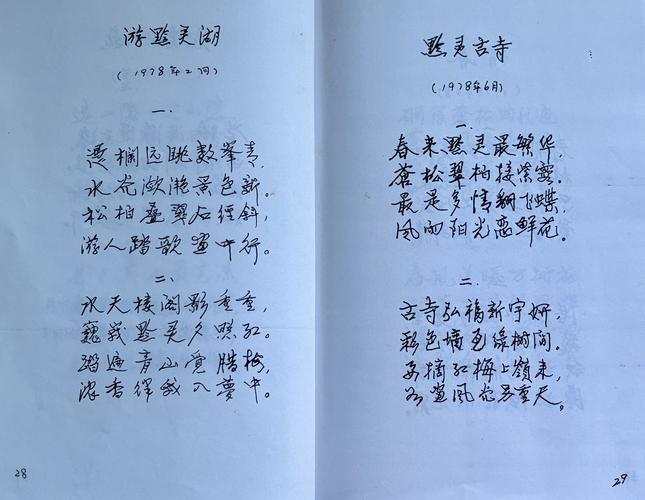 游黔灵湖
(1978年2月)
一.
凭栏远眺数峯青,
水卷潋滟景色新。
松柏叠翠石径斜,
游人踏歌画中行。
二、
水天接阁影重重,
巍峨黔灵夕照红。
踏遍青山觉腊梅,
浓香伴我入夢中。
28
黔灵古寺
(1978年6月)
一.
春来黔灵最繁华,
蒼松翠柏接紫霞。
最是多情翻飞蝶,
风雨阳光恋鲜花。
二.
古寺弘福新宇妍,
彩色墙瓦绿树间。
摘红梅上嶺来,
风光重天。
29